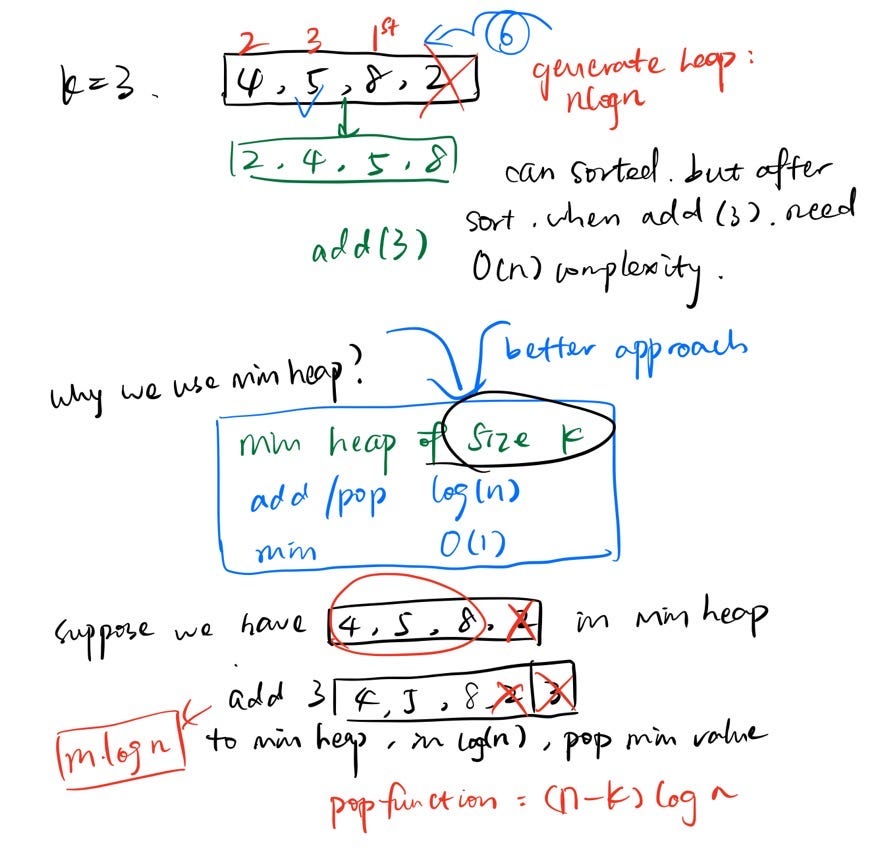 2 3 1st 6
k=3. 4, 5, 8, 2
generate heap:
nlogn
2. 4. 5. 8
can sorted. but after
sort. when add (3). need
O(n) complexity.
add(3)
better approach
why we use min heap?
min heap of size k
add/pop log(n)
min O(1)
suppose we have 4, 5, 8, 2 in min heap
add 3 4, 5, 8 2 3
m.logn
to min heap, in log(n), pop min value
pop function = (n-k) log n